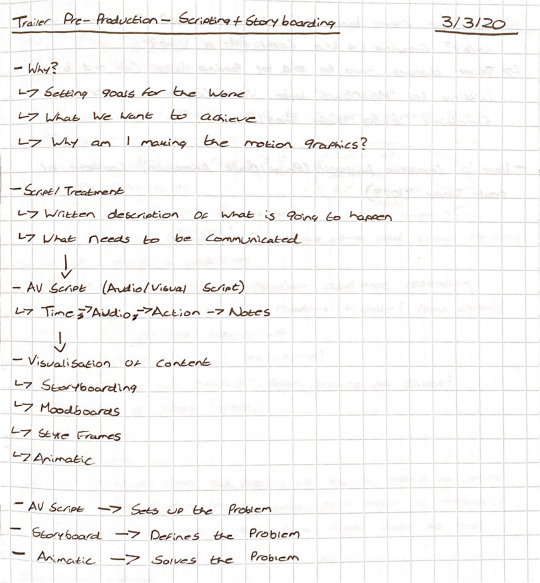 Trailer Pre-Production - Scripting + Storyboarding 3/3/20
- Why?
↳ Setting goals for the work
↳ What we want to achieve
↳ Why am I making the motion graphics?
- Script/Treatment
↳ Written description of what is going to happen
↳ What needs to be communicated
↓
- AV Script (Audio/Visual Script)
↳ Time -> Audio -> Action -> Notes
↓
- Visualisation of Content
↳ Storyboarding
↳ Moodboards
↳ Style Frames
↳ Animatic
- AV Script -> Sets up the Problem
- Storyboard -> Defines the Problem
- Animatic -> Solves the Problem